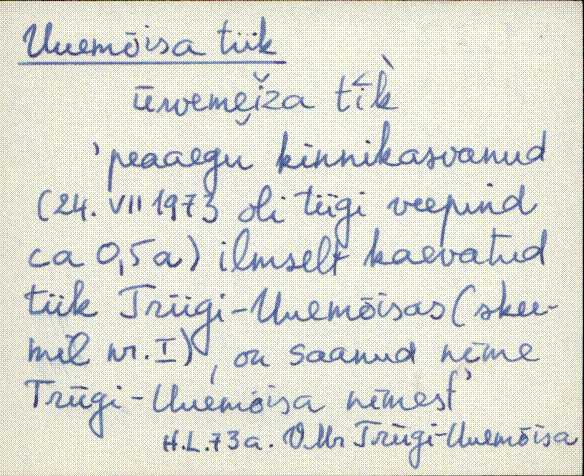 Uuemõisa tiik
ūvemeiza tīk
'peaaegu kinnikasvanud
(24. VII 1973 oli tiigi veepind
ca 0,5a) ilmselt kaevatud
tiik Triigi-Uuemõisas (skee-
mil nr. I), on saanud nime
Triigi-Uuemõisa nimest'
H.L. 73a. VMr Triigi-Uuemõisa